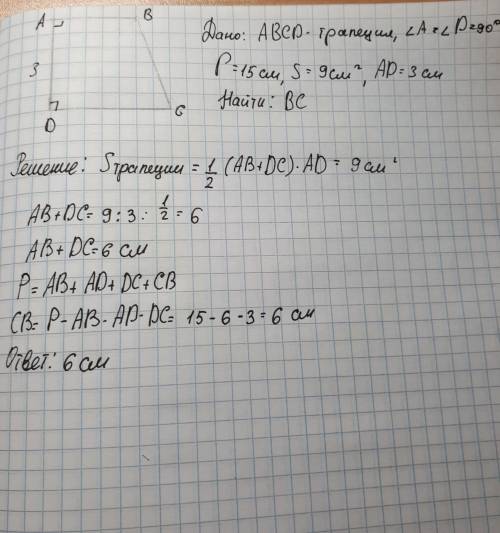 A B
Дано: ABCD - трапеция, ∠A = ∠D = 90°
3
P = 15 см, S = 9 см², AD = 3 см
Найти: BC
D C
Решение: Sтрапеции = 1/2 (AB + DC) · AD = 9 см²
AB + DC = 9 : 3 : 1/2 = 6
AB + DC = 6 см
P = AB + AD + DC + CB
CB = P - AB - AD - DC = 15 - 6 - 3 = 6 см
Ответ: 6 см